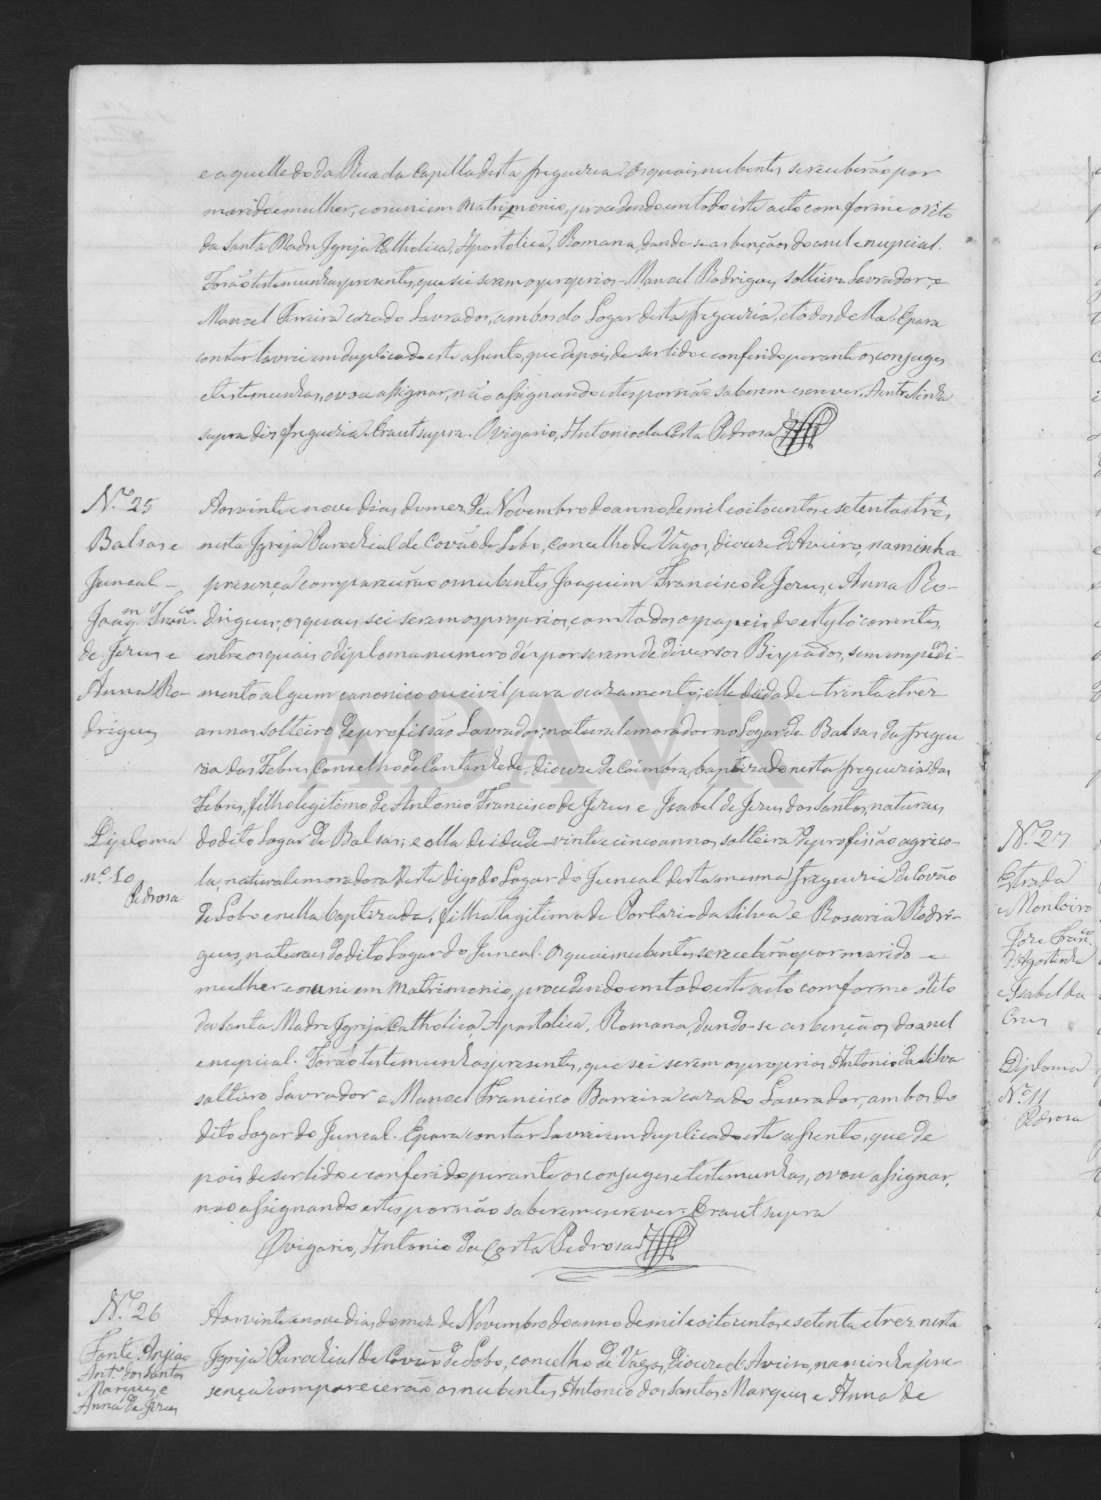 e aquelle do da Rua da Capella desta freguezia. Os quais nubentes se receberão por
marido e mulher, e os uni em Matrimonio, procedendo em todo este acto comforme o Rito
da Santa Madre Igreja Catholica, Apostolica, Romana, dando-se as benções do anel e nupcial.
Forão testemunhas presentes, que sei serem os proprios - Manoel Rodrigues, solteiro Lavrador, e
Manoel Ferreira cazado Lavrador, ambos do Logar desta freguezia, e todos de Ma. E para
constar lavrei em duplicado este assento, que depois de ser lido e conferido perante os conjuges
e testemunhas, o vou assignar, não assignando estes por não saberem escrever. A entrelinha
supra diz freguezia. Era ut supra. O vigario, Antonio da Costa Pedrosa
N.º 25
Balsas e
Juncal -
Joaq.m Fran.co
de Jezus e
Anna Ro-
drigues
Diploma
n.º 10
Pedrosa
Aos vinte e nove dias do mez de Novembro do anno de mil e oito centos e setenta e tres,
nesta Igreja Parochial de Covão do Lobo, concelho de Vagos, diocese d'Aveiro, na minha
presença comparecerão os nubentes Joaquim Francisco de Jezus, e Anna Ro-
drigues, os quais sei serem os proprios, com todos os papeis do estylo correntes,
entre os quais o diploma numero dés por serem de diversos Bispados, sem impedi-
mento algum canonico ou civil para o cazamento; elle de idade - trinta e trez
annos solteiro de profissão Lavrador, natural e morador no Logar de Balsas da fregue
zia das Febres, Concelho de Cantanhede, diocese de Coimbra, baptizado nesta freguezia das
Febres, filho legitimo de Antonio Francisco de Jezus e Izabel de Jezus dos Santos, naturaes
do dito Logar de Balsas; e ella de idade - vinte e cinco annos, solteira, de profissão agrico-
la, natural e moradora desta digo do Logar do Juncal desta mesma freguezia de Covão
de Lobo e nella baptizada, filha legitima de Portario da Silva e Rosaria Rodri-
gues, naturaes do dito Lugar do Juncal. Os quais nubentes se receberão por marido e
mulher e os uni em Matrimonio, procedendo em todo este acto comforme o Rito
da Santa Madre Igreja Catholica Apostolica, Romana, dando-se as benções do anel
e nupcial. Forão testemunhas presentes, que sei serem os proprios Antonio da Silva
solteiro Lavrador e Manoel Francisco Barreira cazado Lavrador, ambos do
dito Logar do Juncal. E para constar lavrei em duplicado este assento, que de
pois de ser lido e conferido perante os conjuges e testemunhas, o vou assignar,
não assignando estes por não saberem escrever. Era ut supra
O vigario, Antonio da Costa Pedrosa
N.º 26
Fonte Angião
Ant.º dos Santos
Marques e
Anna de Jezus
Aos vinte e nove dias do mez de Novembro do anno de mil e oito centos e setenta e trez nesta
Igreja Parochial de Covão de Lobo, concelho de Vagos, diocese d'Aveiro, na minha pre-
sença comparecerão os nubentes Antonio dos Santos Marques e Anna de
N.º 27
Estrada
e Monteiro
Joze Fran.co
d'Agostinha
e Isabel da
Cruz
Diploma
N.º 11
Pedrosa
ADAVR